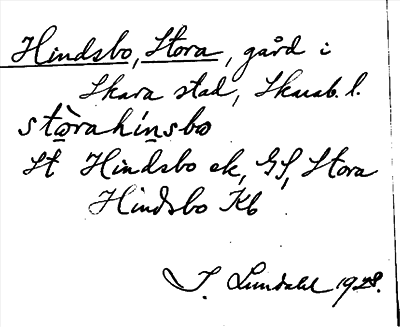 Hindsbo, Stora, gård i
Skara stad, Skarab. l.
stòrahinsbo
St Hindsbo ek, GS, Stora
Hindsbo Kb
I. Lundahl 1928.